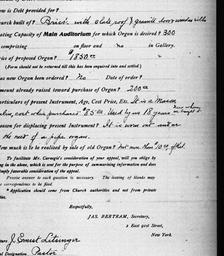 is Debt provided for?
urch built of? Brick with slate roof & granite
ating Capacity of Main Auditorium for which Organ is desired? 300
comprising on floor and no in Gallery.
rice of proposed Organ? $1850.00
(Form should not be returned till this has been inquired into and settled)
as new Organ been ordered? No Date of order?
mount already raised toward purchase of Organ? 200.00
articulars of present Instrument, Age, Cost Price, Etc. It is a Mason
cost when purchased $500 Used by us 18 years
eason for displacing present Instrument? It is worn out and
the need of a pipe organ.
ow much is to be realized by sale of old Organ? Not more than
To facilitate Mr. Carnegie's consideration of your appeal, will you oblige by
ing in the above, which is sent for the purpose of summarizing information and does
imply favorable consideration of the appeal.
Precise answer to each question is necessary. The issuing of blanks may
correspondence to be filed.
Application should come from Church authorities and not from private
ties.
Respectfully,
JAS. BERTRAM, Secretary,
2 East 91st Street,
New York.
J. Ernest
Designation. Pastor